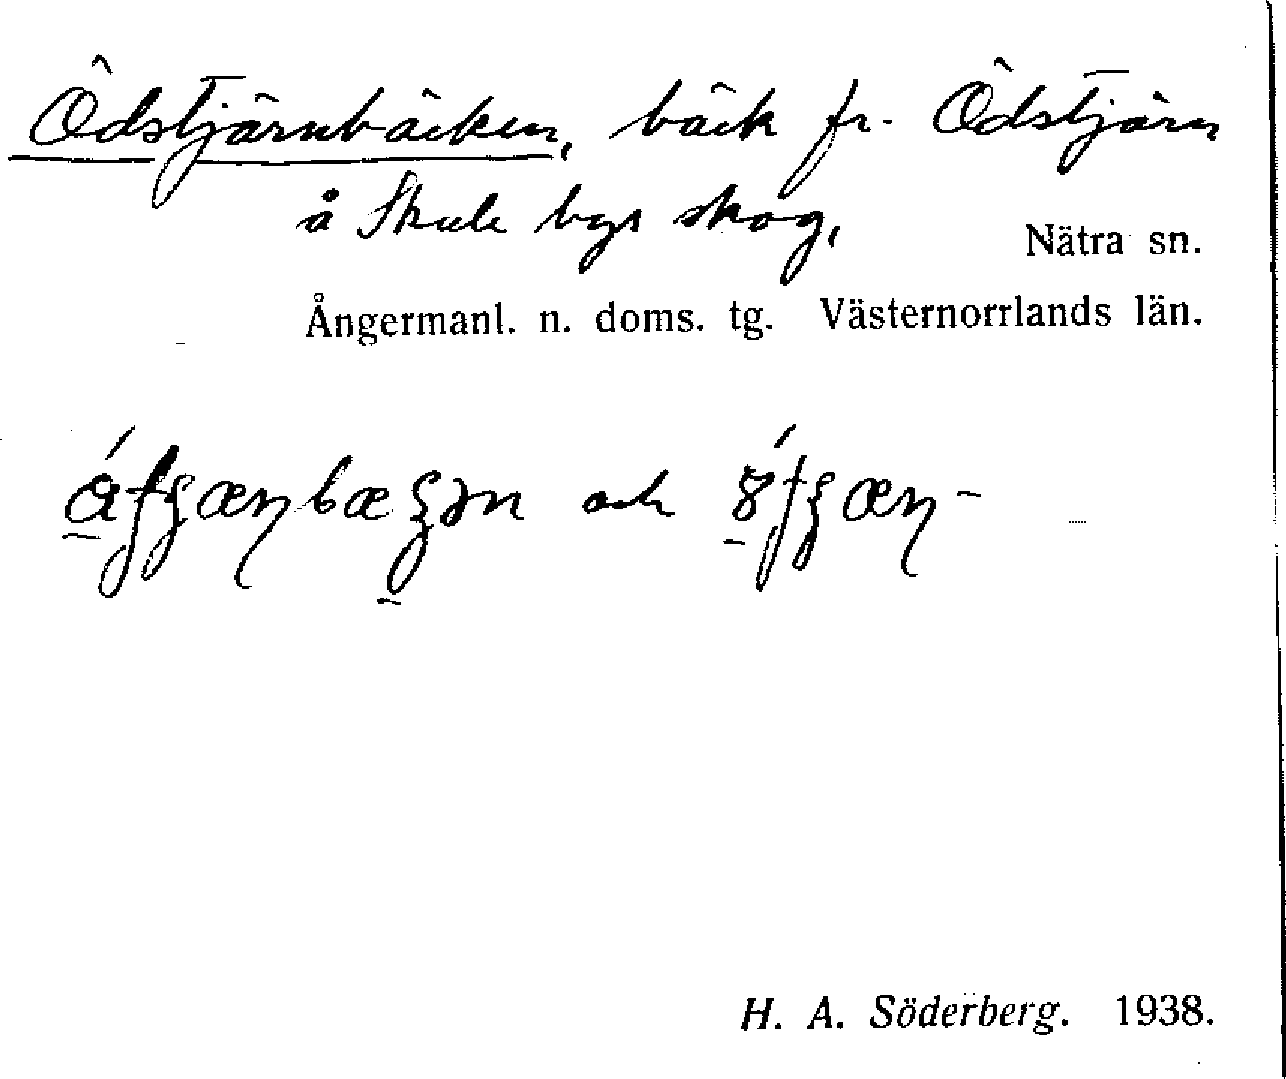 Ödstjärnbäcken, bäck fr. Ödstjärn
å Skule bys skog, Nätra sn.
Ångermanl. n. doms. tg. Västernorrlands län.
och
H. A. Söderberg. 1938.